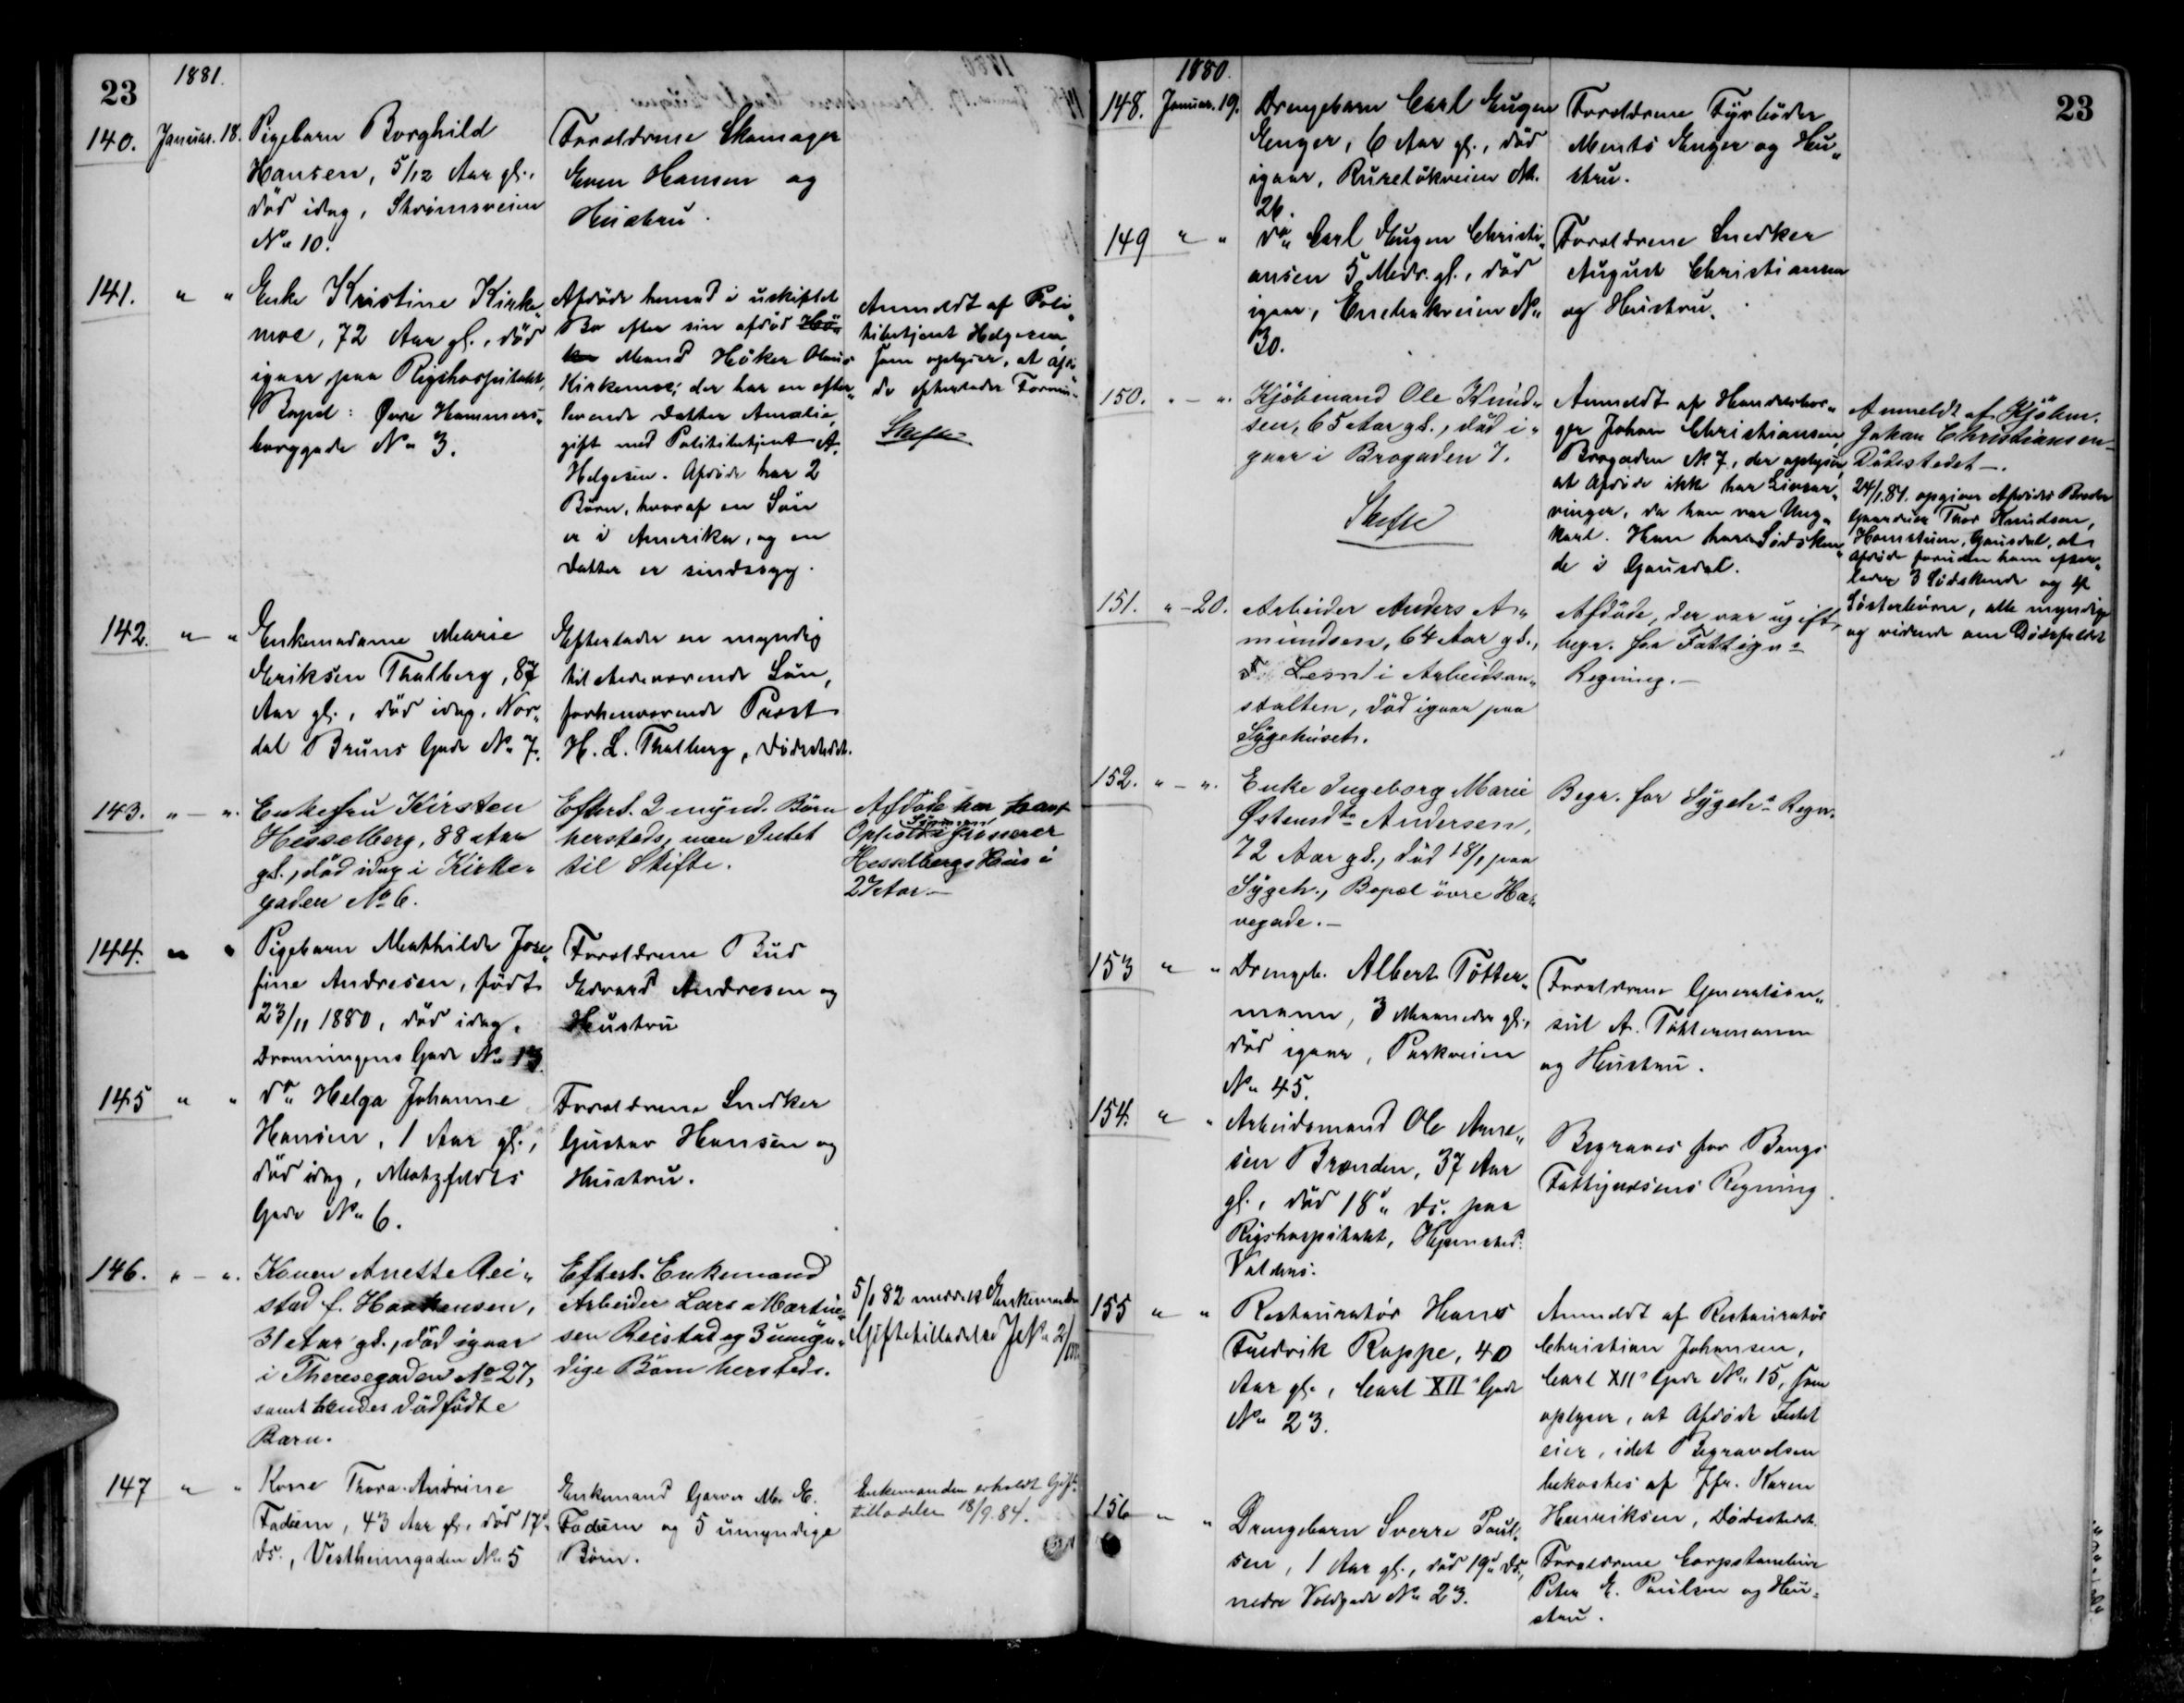 23
1881.
140. Januar. 18. Pigebarn Borghild
Hansen, 5/12 Aar gl.,
död idag, Strömsveien
No 10.
Forældrene Skomager
Even Hansen og
Hustru.
141. " " Enke Kristine Kirke„
moe, 72 Aar gl., død
igaar paa Rigshospitalet,
Bopæl: Øvre Hammers„
borggade No 3.
Afdøde hensad i uskiftet
Bo efter sin afdød
Mand Høker Olaus
Kirkemoe; der har en efter„
levende Datter Amalie,
gift med Politibetjent A.
Helgesen. Afdøde har 2
Børn, hvoraf en Søn
er i Amerika, og en
Datter er sindssyg.
Anmeldt af Poli„
tibetjent Helgesen,
som oplyser, at afdø„
de efterlader Formu„
Skifte
142. " " Enkemadame Marie
Eriksen Thalberg, 87
Aar gl., död idag, Nor„
dal Bruns Gade No 7.
Efterlader en myndig
tilstedeværende Søn,
forhenværende Præst
H. L. Thalberg, Dødsstedet.
143. " - ". Enkefru Kirsten
Hesselberg, 88 Aar
gl., död idag i Kirke„
gaden No 6.
Efterl. 2 mynd. Börn
hersteds, men Intet
til Skifte.
Afdøde har havt
Ophold i Sønnen Grosserer
Hesselbergs Huus i
27 Aar.—
144. " " Pigebarn Mathilde Jose„
fine Andresen, født
23/11 1880, död idag,
Dronningens Gade No 13.
Forældrene Bud
Edvard Andresen og
Hustru
145 " " Do Helga Johanne
Hansen, 1 Aar gl.,
död idag, Motzfeldts
Gade No 6.
Forældrene Snedker
Gustav Hansen og
Hustru.
146. " - ". Konen Anette Rei„
stad f. Haakensen,
31 Aar gl., død igaar
i Theresegaden No 27,
samt hendes dødfødte
Barn.
Efterl. Enkemand
Arbeider Lars Martin„
sen Reistad og 3 umyn„
dige Børn hersteds.
5/1 82 meddelt Enkemanden
Giftetilladelse
147 " " Kone Thora Andrine
Fadum, 43 Aar gl., död 17d
ds., Vestheimgaden No 5
Enkemand Garver M. E.
Fadum og 5 umyndige
Börn.
Enkemanden erholdt Gifte
tilladelse 18/9. 84.
23
1880.
148. Januar. 19. Drengebarn Carl Eugen
Enger, 6 Aar gl., död
igaar, Ruseløkveien No
26.
Forældrene Fyrbøder
Ments Enger og Hu„
stru.
149 " " Do Carl Eugen Christi„
ansen 5 Mdr. gl., död
igaar, Enebakveien No
30.
Forældrene Snedker
August Christiansen
og Hustru.
150. " - ". Kjöbmand Ole Knud„
sen, 65 Aar gl., död i„
gaar i Brogaden 7.
Skifte
Anmeldt af Handelsbor„
ger Johan Christiansen,
Brogaden No 7, der oplyser,
at Afdøde ikke har Livsar„
vinger, da han var Ung„
karl. Han har Södsken„
de i Gausdal.
Anmeldt af Kjöbm.
Johan Christiansen
Dødsstedet—.
24/1.81. opgiver Afdødes Broder
Gaardbrue Thor Knudsen,
Gausdal, at
Afdøde foruden ham efter„
lader 3 Södskende og 4
Søsterbørn, alle myndige
og vidende om Dødsfaldet
151. " - 20. Arbeider Anders A„
mundsen, 64 Aar gl.,
Lem i Arbeidsan„
stalten, död igaar paa
Sygehuset.
Afdøde, der var ugift,
begr. for Fattigv.s
Regning.—
152. " - ". Enke Ingeborg Marie
Østensdtr Andersen,
72 Aar gl., död 18/1 paa
Sygeh., Bopæl övre Ha„
vegade.—
Begr. for Sygeh.s Regn.
153 " " Drengeb. Albert Tötter„
mann, 3 Maaneder gl.,
död igaar, Parkveien
No 45.
Forældrene Generalkon„
sul A. Töttermann
og Hustru.
154. " " Arbeidsmand Ole Arne„
sen Brænden, 37 Aar
gl., död 18d ds. paa
Rigshospitalet, Hjemsted:
Valders.
Begraves for Bangs
Fattigvæsens Regning.
155 " " Restauratör Hans
Fredrik Rappe, 40
Aar gl., Carl XII's Gade
No 23.
Anmeldt af Restauratör
Christian Johansen,
Carl XII's Gade No 15, som
oplyser, at Afdøde Intet
eier, idet Begravelsen
bekostes af Jfr. Karen
Henriksen, Dødsstedet.
156 " " Drengebarn Sverre Paul„
sen, 1 Aar gl., död 19d ds.,
nedre Voldgade No 23.
Forældrene Corpstambur
Peter E. Paulsen og Hu„
stru.